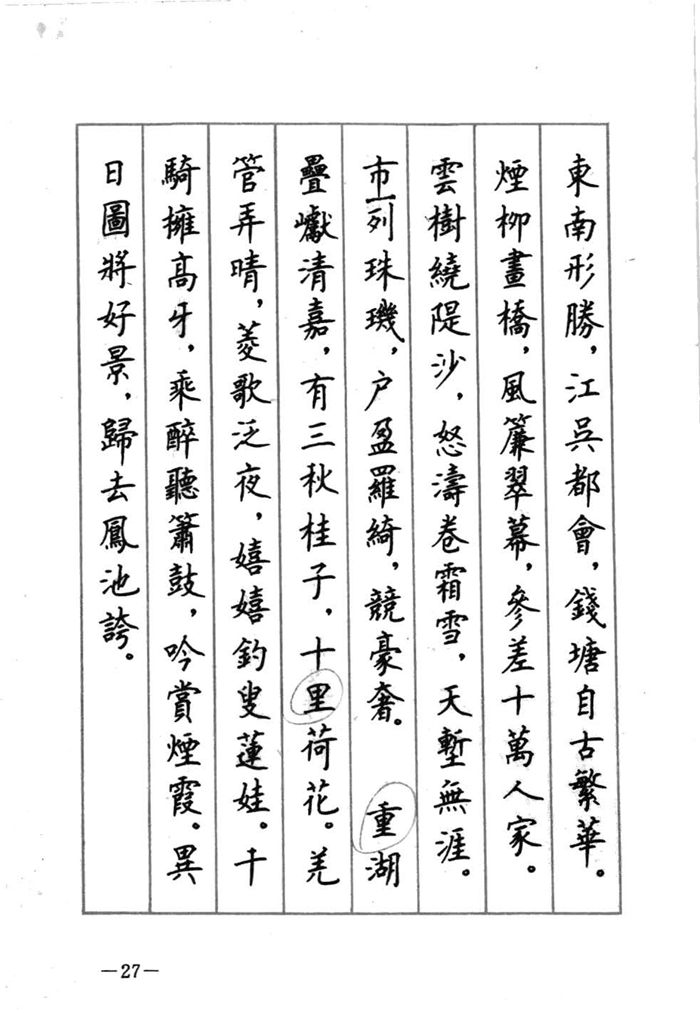 東南形勝，江吳都會，錢塘自古繁華。
煙柳畫橋，風簾翠幕，參差十萬人家。
雲樹繞隄沙，怒濤卷霜雪，天塹無涯。
市列珠璣，户盈羅綺，競豪奢。　重湖
疊巘清嘉，有三秋桂子，十里荷花。羌
管弄晴，菱歌泛夜，嬉嬉釣叟蓮娃。千
騎擁高牙，乘醉聽簫鼓，吟賞煙霞。異
日圖將好景，歸去鳳池誇。
—27—